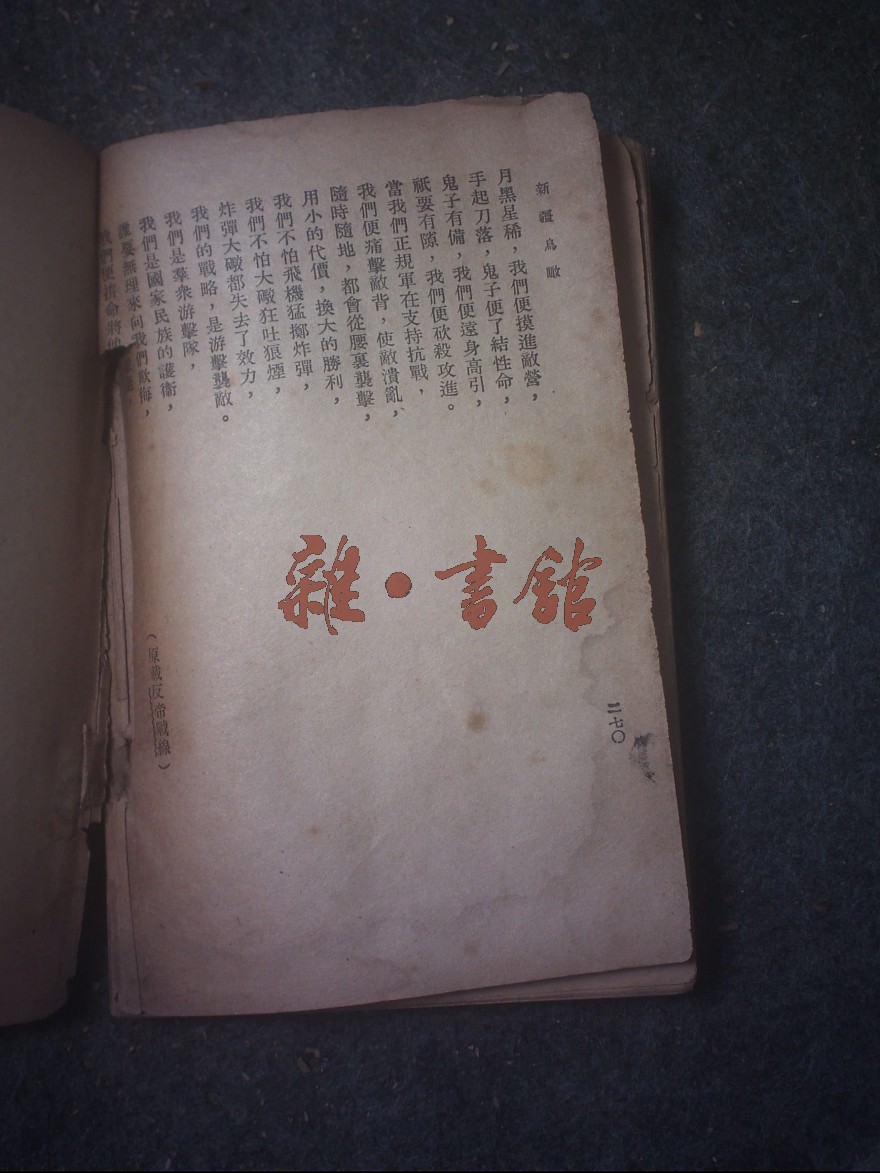 新疆鳥瞰
月黑星稀，我們便摸進敵營，
手起刀落，鬼子便了結性命，
鬼子有備，我們便遠身高引，
祇要有隙，我們便砍殺攻進。
當我們正規軍在支持抗戰，
我們便痛擊敵背，使敵潰亂，
隨時隨地，都會從腰裏襲擊，
用小的代價，換大的勝利，
我們不怕飛機猛擲炸彈，
我們不怕大礮狂吐狼煙，
炸彈大礮都失去了效力，
我們的戰略，是游擊襲敵。
我們是羣衆游擊隊，
我們是國家民族的護衛，
誰要無理來向我們欺侮，
我們便拚命將他
（原載反帝戰線）
二七〇
雜·書館